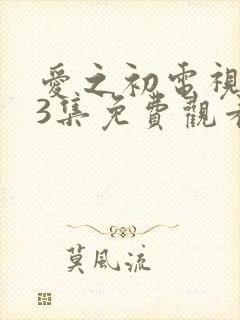 愛之初電視
3集免費觀看
莫風流